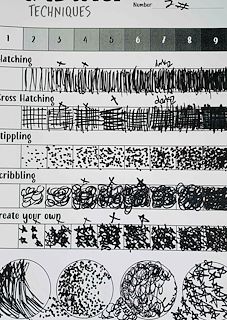 TECHNIQUES
Number
1 2 3 4 5 6 7 8 9
Hatching
Cross Hatching
Stippling
Scribbling
Create your own